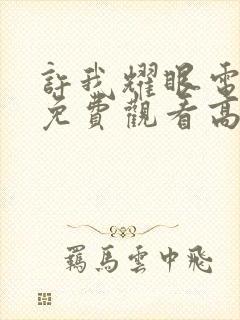 許我耀眼電
免費觀看高
羈馬雲中飛